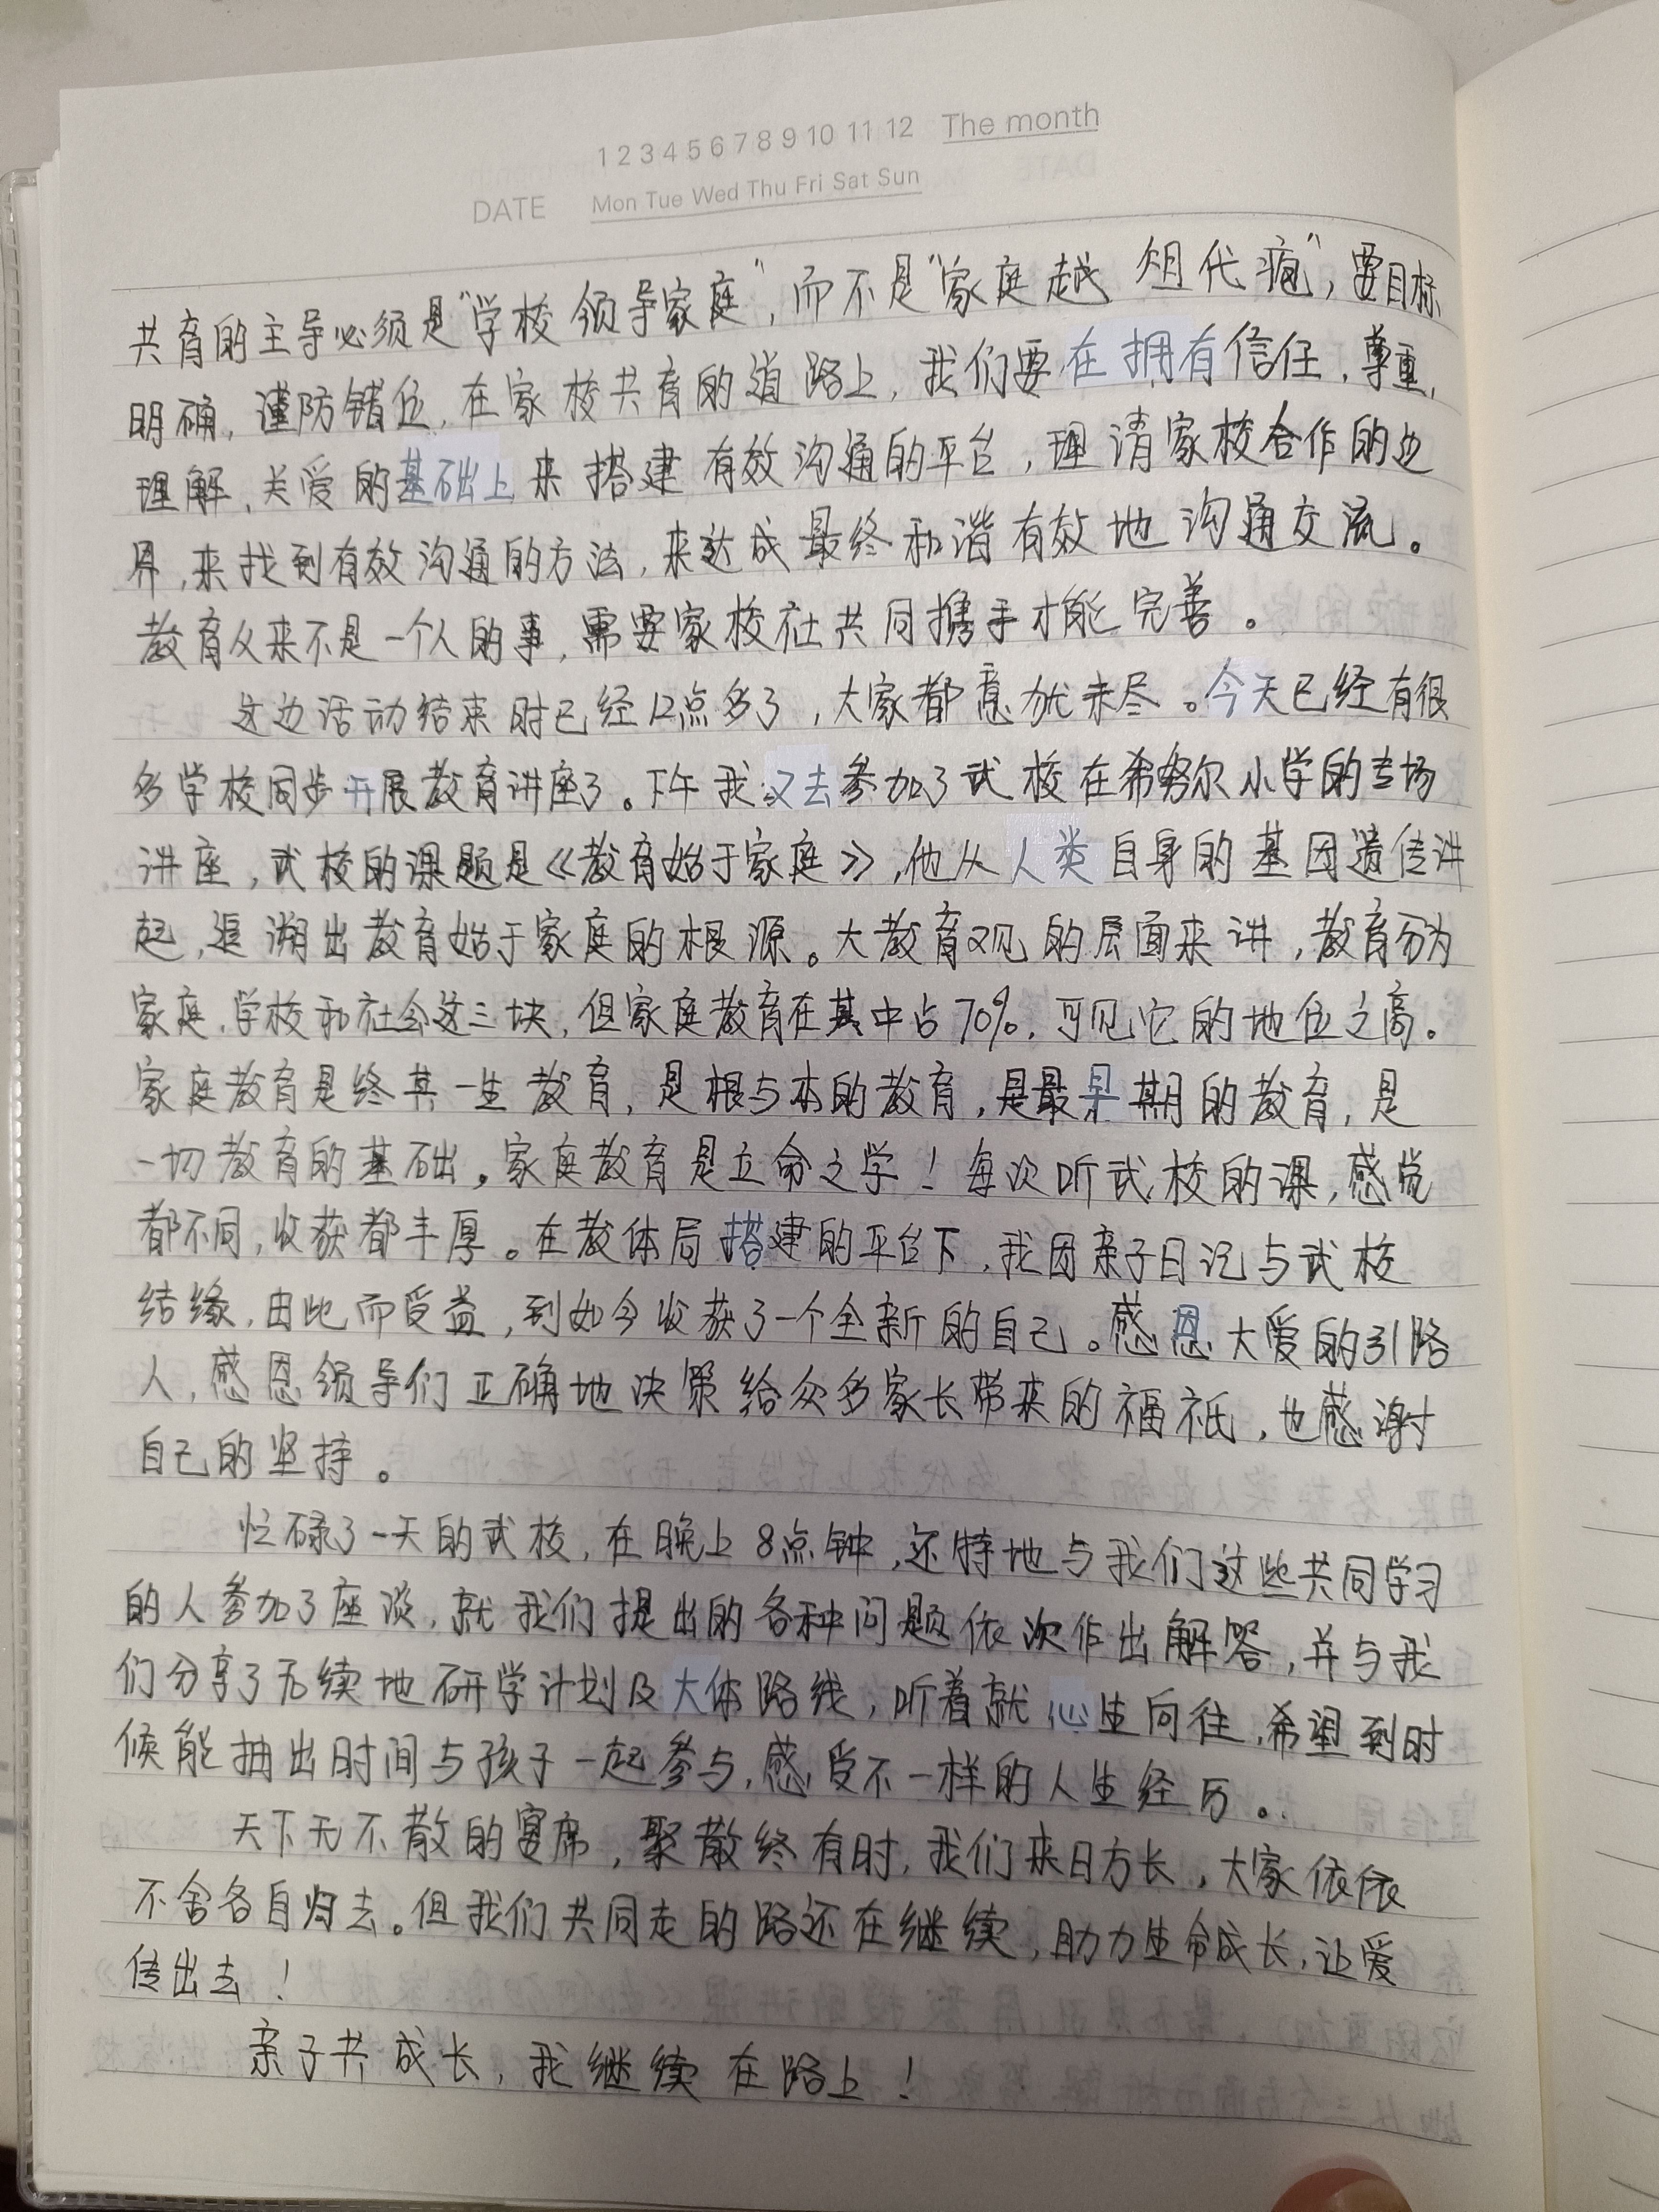 1 2 3 4 5 6 7 8 9 10 11 12 The month
DATE Mon Tue Wed Thu Fri Sat Sun
共育的主导必须是“学校领导家庭”，而不是“家庭越俎代疱”，要目标
明确，谨防错位，在家校共育的道路上，我们要在拥有信任、尊重、
理解、关爱的基础上来搭建有效沟通的平台，理请家校合作的边
界，来找到有效沟通的方法，来达成最终和谐有效地沟通交流。
教育从来不是一个人的事，需要家校社共同携手才能完善。
这边活动结束时已经12点多了，大家都意犹未尽。今天已经有很
多学校同步开展教育讲座了。下午我又去参加了武校在希努尔小学的专场
讲座，武校的课题是《教育始于家庭》，他从人类自身的基因遗传讲
起，追溯出教育始于家庭的根源。大教育观的层面来讲，教育分为
家庭、学校和社会这三块，但家庭教育在其中占70%，可见它的地位之高。
家庭教育是终其一生教育，是根与本的教育，是最早期的教育，是
一切教育的基础。家庭教育是立命之学！每次听武校的课，感觉
都不同，收获都丰厚。在教体局搭建的平台下，我因亲子日记与武校
结缘，由此而受益，到如今收获了一个全新的自己。感恩大爱的引路
人，感恩领导们正确地决策给众多家长带来的福祇，也感谢
自己的坚持。
忙碌了一天的武校，在晚上8点钟，还特地与我们这些共同学习
的人参加了座谈，就我们提出的各种问题依次作出解答，并与我
们分享了后续地研学计划及大体路线，听着就心生向往，希望到时
候能抽出时间与孩子一起参与，感受不一样的人生经历。
天下无不散的宴席，聚散终有时，我们来日方长，大家依依
不舍各自归去。但我们共同走的路还在继续，助力生命成长，让爱
传出去！
亲子共成长，我继续在路上！